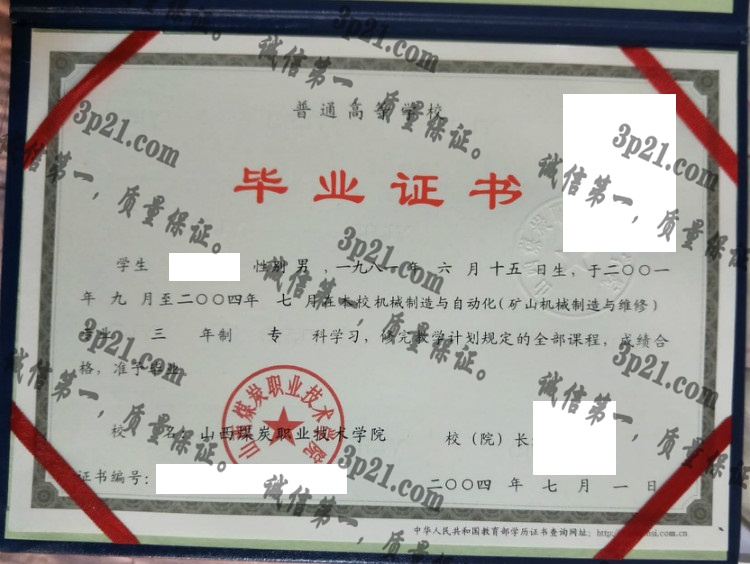 普通高等学校
毕业证书
学生 性别 男 ，一九八一年 六 月 十五 日生，于二〇〇一
年 九 月至二〇〇四年 七 月在本校机械制造与自动化(矿山机械制造与维修)
专业 三 年制 专 科学习，修完教学计划规定的全部课程，成绩合
格，准予毕业
校 名：山西煤炭职业技术学院 校（院）长：
山西煤炭职业技术学院
证书编号： 二〇〇四 年 七 月 一 日
中华人民共和国教育部学历证书查询网址：http
3p21.com
诚信第一，质量保证。
3p21.com
诚信第一，质量保证。
3p21.com
诚信第一，质量保证。
3p21.com
诚信第一，质量保证。
3p21.com
诚信第一，质量保证。
3p21.com
诚信第一，质量保证。
3p21.com
诚信第一，质量保证。